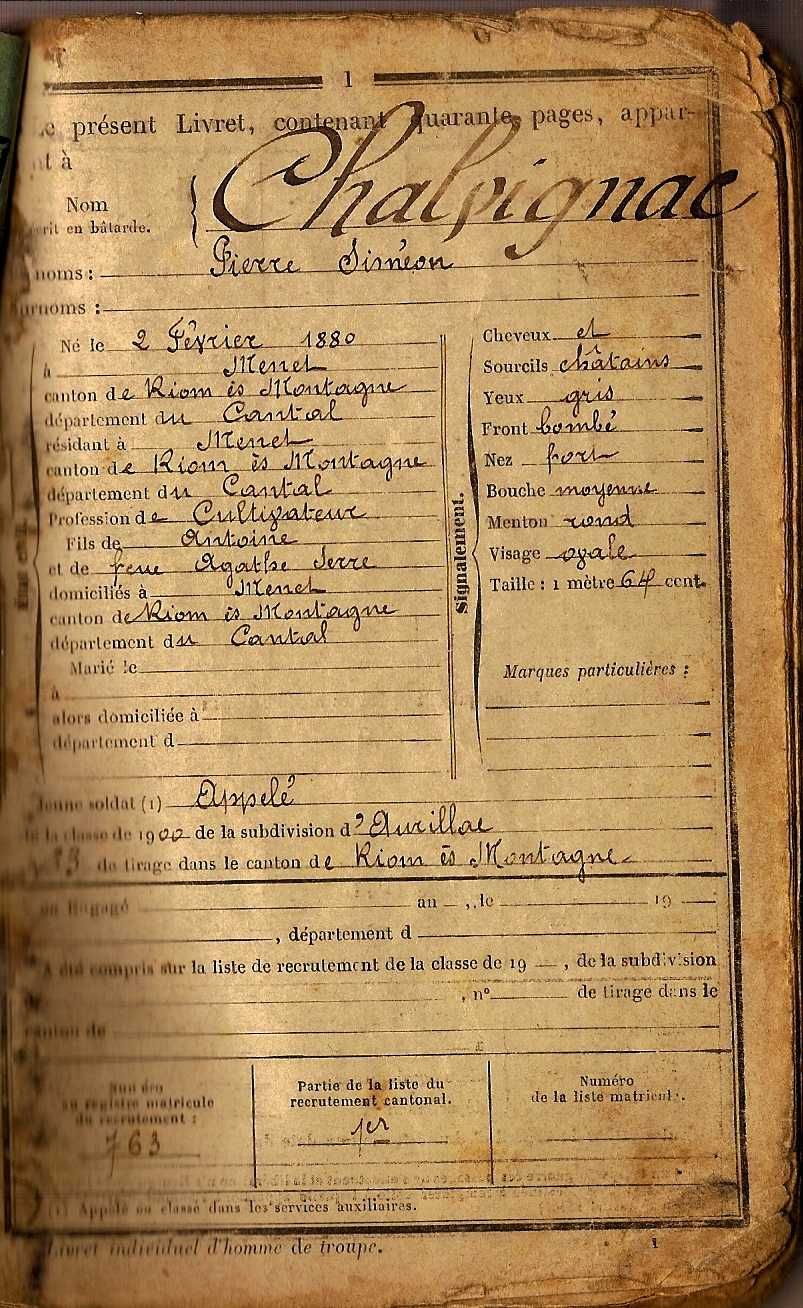 1
présent Livret, contenant quarante pages, appar-
t à
Nom Chalvignac
rit en bâtarde.
noms : Pierre Siméon
rnoms :
Né le 2 Février 1880
à Menet
canton de Riom ès Montagne
département du Cantal
résidant à Menet
canton de Riom ès Montagne
département du Cantal
Profession de Cultivateur
Fils de Antoine
et de feue Agathe Serre
domiciliés à Menet
canton de Riom ès Montagne
département du Cantal
Marié le
à
alors domiciliée à
département d
Signalement.
Cheveux et
Sourcils châtains
Yeux gris
Front bombé
Nez fort
Bouche moyenne
Menton rond
Visage ovale
Taille : 1 mètre 64 cent.
Marques particulières :
Jeune soldat (1) Appelé
de la classe de 1900 de la subdivision d'Aurillac
de tirage dans le canton de Riom ès Montagne
ou Engagé au , le 19
, département d
A été compris sur la liste de recrutement de la classe de 19 , de la subdivision
, n° de tirage dans le
canton de
au registre matricule
du recrutement :
763
Partie de la liste du
recrutement cantonal.
1er
Numéro
de la liste matricule.
(1) Appelé ou classé dans les services auxiliaires.
Livret individuel d'homme de troupe. 1